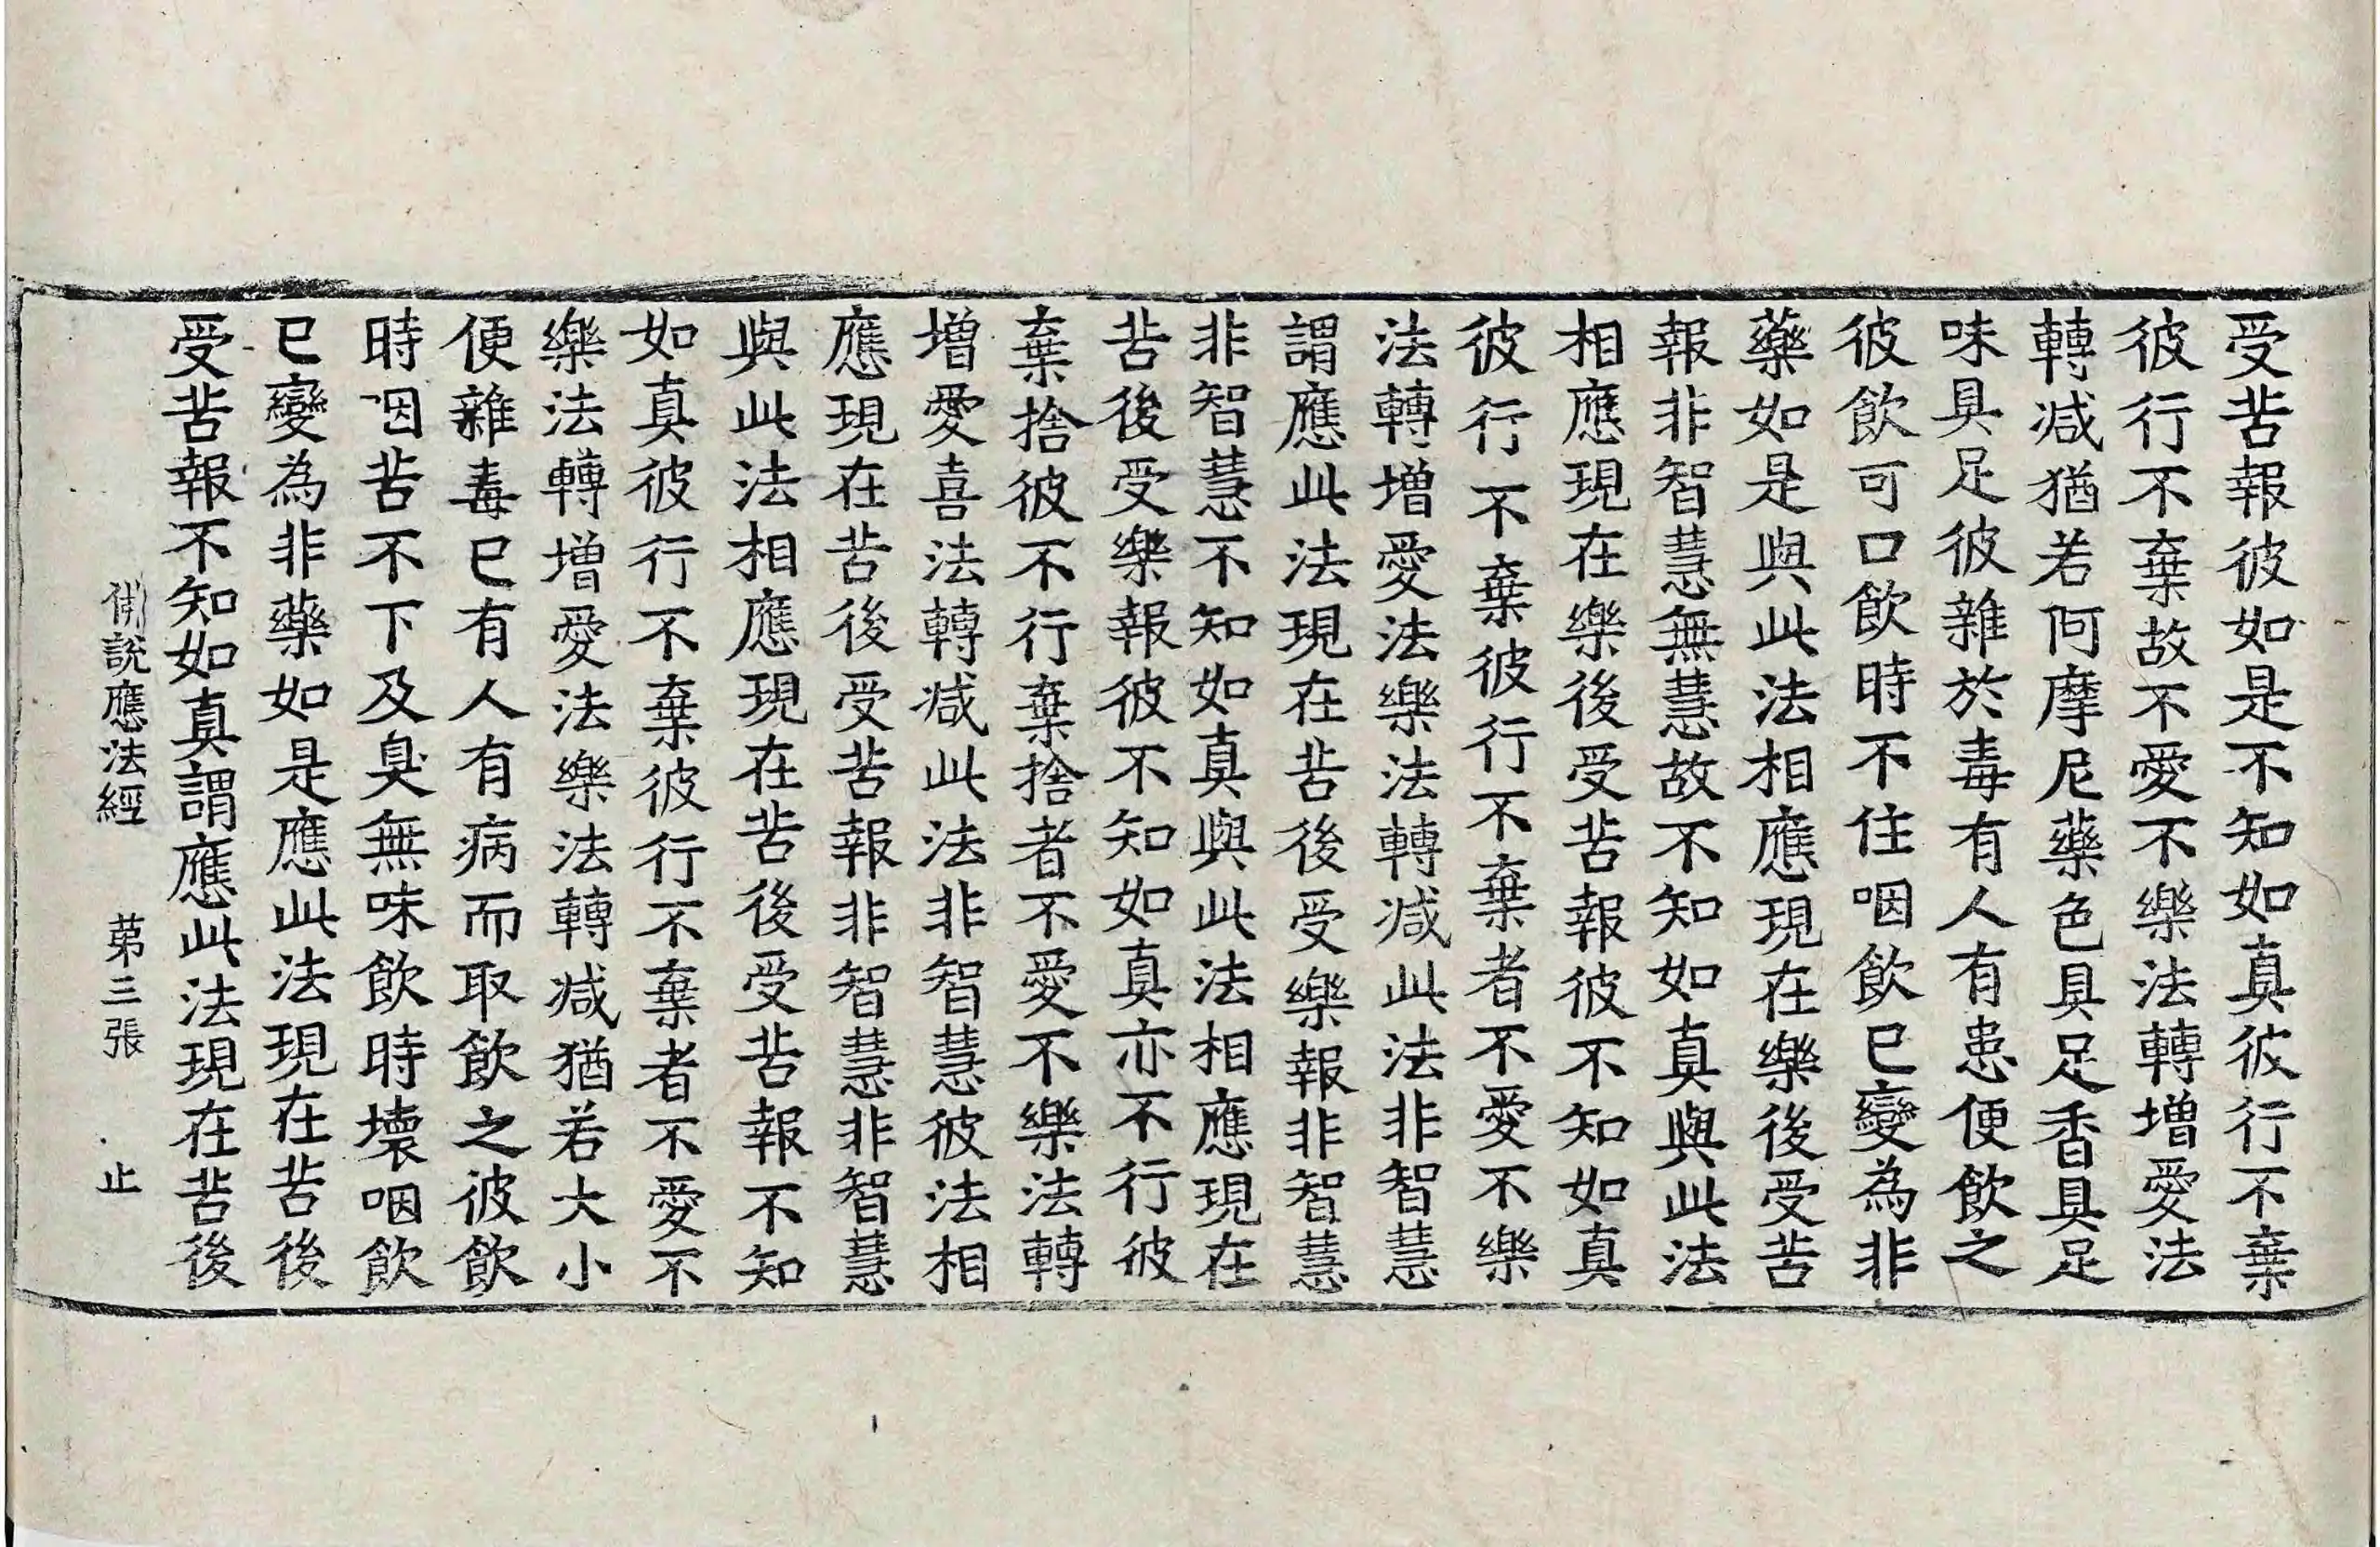 受苦報彼如是不知如真彼行不棄
彼行不棄故不愛不樂法轉增愛法
轉減猶若阿摩尼藥色具足香具足
味具足彼雜於毒有人有患便飲之
彼飲可口飲時不住咽飲已變為非
藥如是與此法相應現在樂後受苦
報非智慧無慧故不知如真與此法
相應現在樂後受苦報彼不知如真
彼行不棄彼行不棄者不愛不樂
法轉增愛法樂法轉減此法非智慧
謂應此法現在苦後受樂報非智慧
非智慧不知如真與此法相應現在
苦後受樂報彼不知如真亦不行彼
棄捨彼不行棄捨者不愛不樂法轉
增愛喜法轉減此法非智慧彼法相
應現在苦後受苦報非智慧非智慧
與此法相應現在苦後受苦報不知
如真彼行不棄彼行不棄者不愛不
樂法轉增愛法樂法轉減猶若大小
便雜毒已有人有病而取飲之彼飲
時咽苦不下及臭無味飲時壞咽飲
已變為非藥如是應此法現在苦後
受苦報不知如真謂應此法現在苦後
佛說應法經 第三張 止